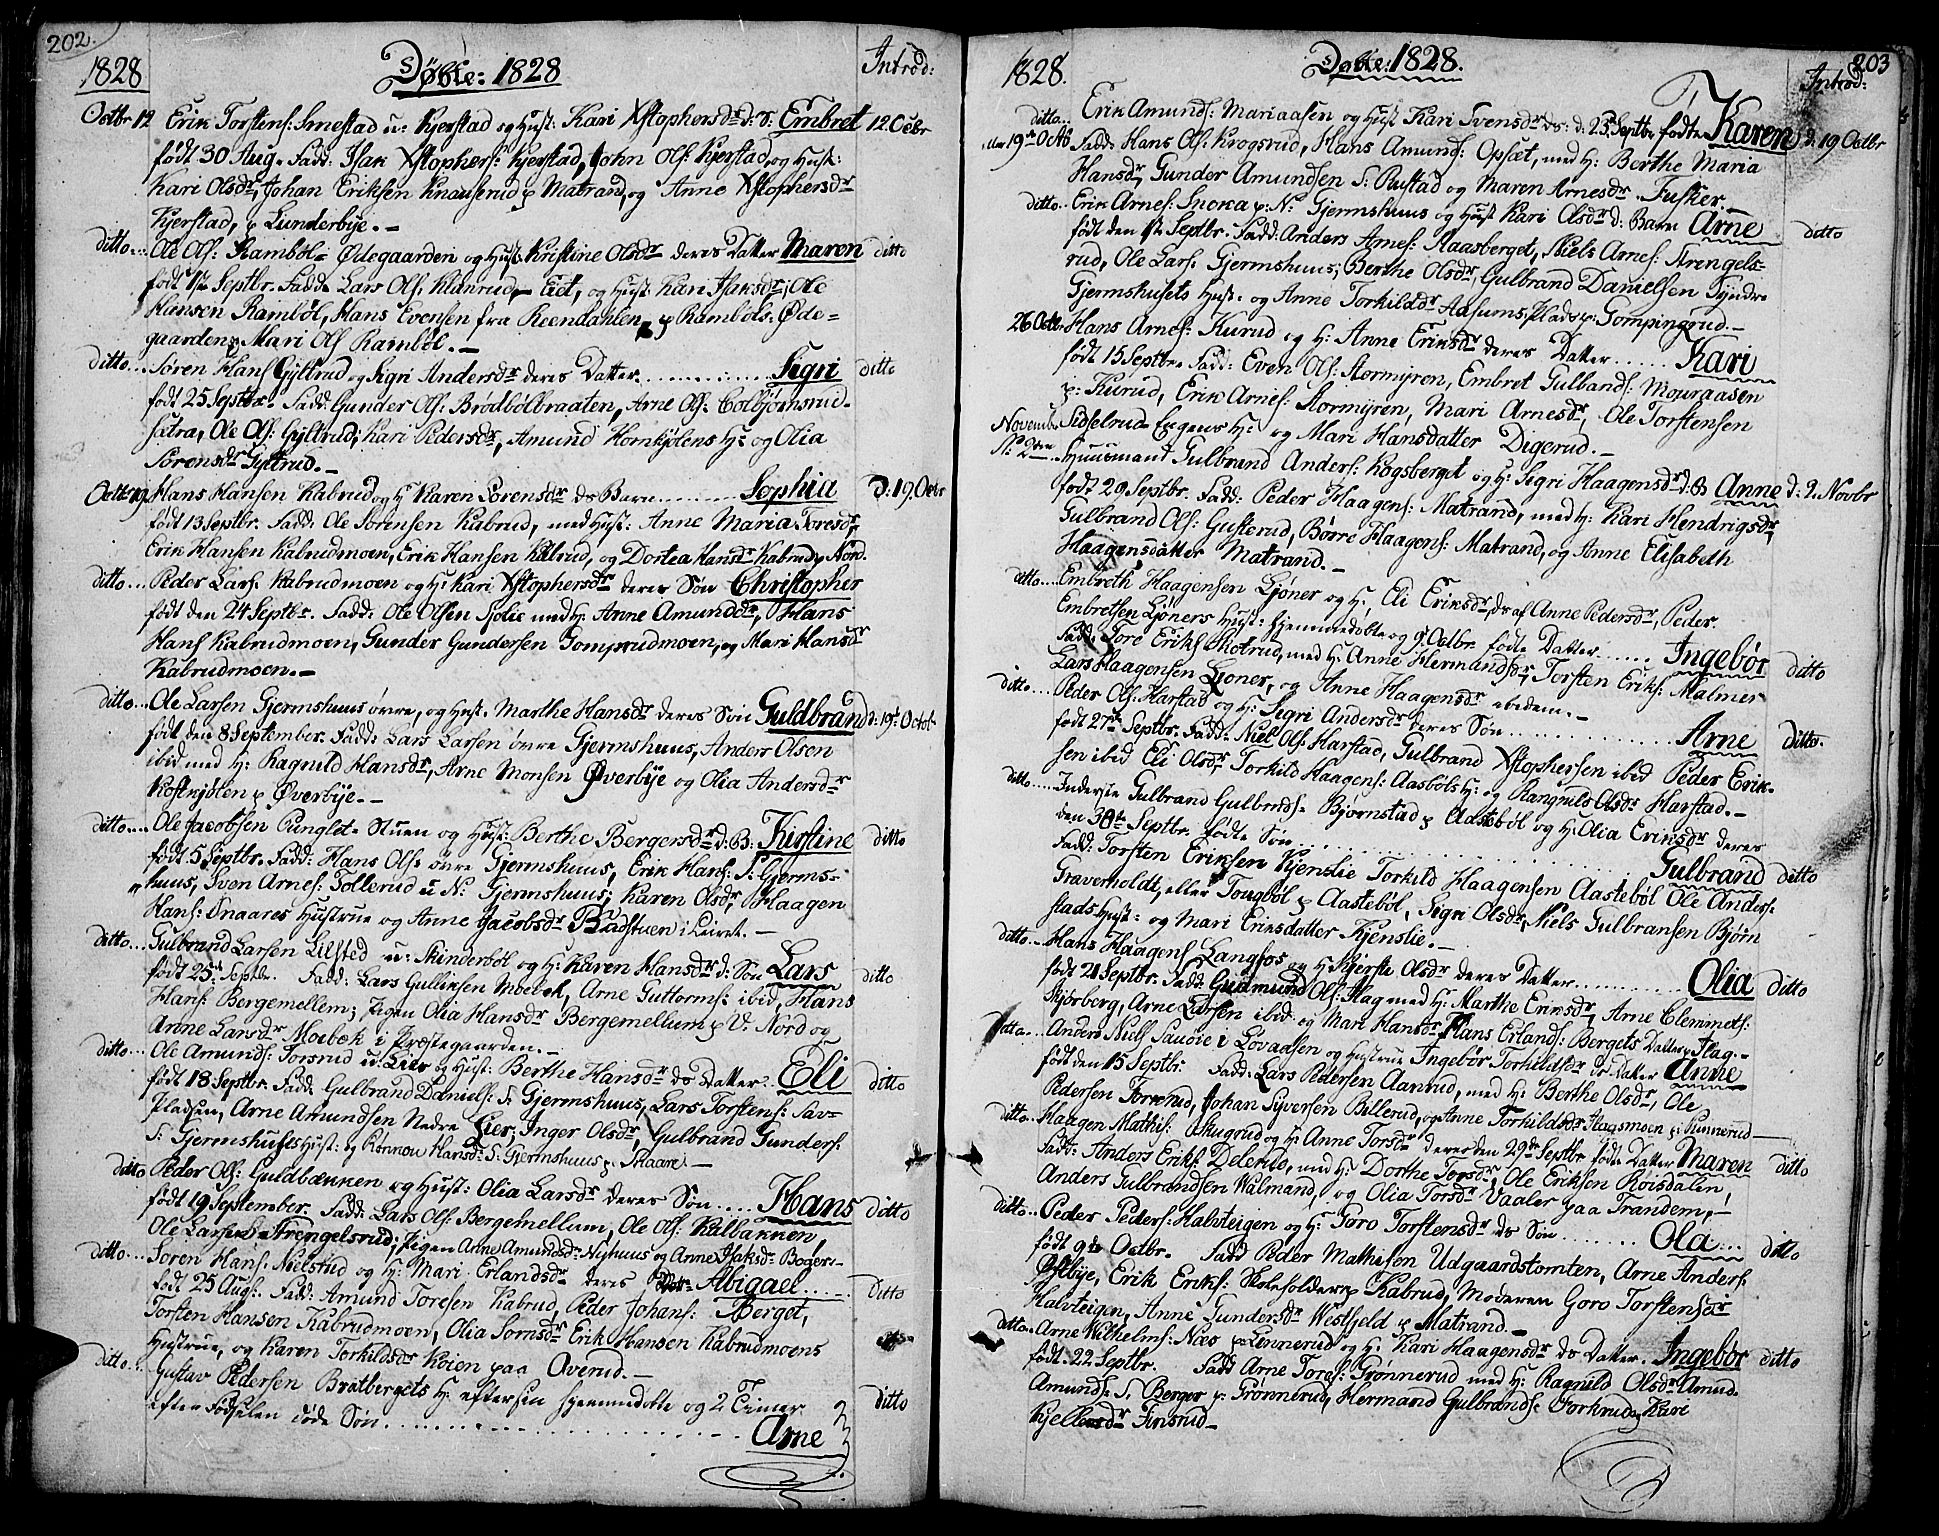 202.
1828 Døbte: 1828 Introd:
Octbr 12 Erik Torstens: Smestad u: Kjerstad og Hust: Kari Xstophersdr d: S: Embret 12 Octbr
født 30 Aug. Fadd: Isak Xstophers: Kjerstad, John Ols: Kjerstad, og Hust:
Kari Olsdr, Johan Eriksen Knauserud p Matrand, og Anne Xstophersdr
Kjerstad, p Lunderbye.-
ditto... Ole Ols: Rambøl- Ødegaarden og Hust. Kristine Olsdr deres Datter Maren ditto
født 1ste Septbr. Fadd: Lars Ols: Klanrud, Eid, og Hust: Kari Isaksdr, Ole
Hansen Rambøl, Hans Evensen fra Reendahlen p Rambøls. Øde=
gaarden, Mari Ols Rambøl.-
ditto.. Søren Hans Gyltrud og Sigri Andersdr deres Datter......... Sigri ditto
født 25 Septbr. Fadd: Gunder Ols: Brødbølbraaten, Arne Ols: Colbjørnsrud-
sætra, Ole Ols: Gyltrud; Kari Pedersdr, Amund Hornkjølens H: og Olia
Sørensdr Gyltrud.-
Octbr 19. Hans Hansen Kabrud og H: Karen Sørensdr ds Barn........ Sophia D: 19. Octbr
født 13 Septbr. Fadd: Ole Sørensen Kabrud, med Hust: Anne Maria Toresdr,
Erik Hansen Kabrudmoen, Erik Hansen Kabrud, og Dortea Hansdr Kabrud p Nord.
ditto... Peder Lars: Kabrudmoen og H: Kari Xstophersdr deres Søn Christopher
født den 24 Septbr. Fadd: Ole Olsen Sjølie med H: Anne Amundsdr, Hans
Hans Kabrudmoen, Gunder Gundersen Gomprudmoen, og Mari Hansdr
Kabrudmoen.-
ditto... Ole Larsen Gjermshuus øvre, og Hust. Marthe Hansdr deres Søn Guldbrand d: 19t Octob-
født den 8 September. Fadd: Lars Larsen øvre Gjermshuus, Anders Olsen
ibid med H: Ragnild Hansdr, Arne Monsen Øverbye og Olia Andersdr
Kostkjølen p Øverbye.-
ditto.... Ole Jacobsen Punglet- Stuen og Hust: Berthe Bergersdr d: B: Kirstine ditto
født 5 Septbr. Fadd: Hans Ols: øvre Gjermshuus, Erik Hans: S: Gjerms-
huus, Sven Arnes: Tollerud u N: Gjermshuus; Karen Olsdr, Haagen
Hans: Snaares Hustrue og Anne Jacobsdr Badstuen i Leiret.-
ditto... Gulbrand Larsen Lilsted u: Skinderbøl og H: Karen Hansdr d: Søn Lars ditto
født 25de Septbr. Fadd: Lars Gullinsen Moebek, Arne Guttorms: ibid, Hans
Hans: Bergemellem; Pigen Olia Hansdr Bergemellum p V: Nord og
Anne Larsdr Moebek i Præstegaarden.-
ditto... Ole Amunds: Torsrud u: Lier og Hust: Berthe Hansdr ds Datter.. Eli ditto
født 18 Septbr. Fadd: Gulbrand Daniels: S: Gjermshuus, Lars Torstens: Sav-
Pladsen, Arne Amundsen Nedre Lier; Inger Olsdr, Gulbrand Gunders:
S: Gjermshuses Hust: og Rønnou Hansdr: S: Gjermshuus p: Skaare.-
ditto Peder Ols: Guldbækken og Hust: Olia Larsdr deres Søn ..... Hans ditto
født 19 September. Fadd: Lars Ols: Bergemellum, Ole Ols: Kulbakken,
Ole Larsen Strengelsrud; Pigen Anne Amundsdr: Nyhuus og Anne Isaksdr Boger-
ditto.. Søren Hans: Nielstrud og H: Mari Erlandsdr deres Abigael...... ditto
født 25 Aug: Fadd: Amund Toresen Kabrud, Peder Johans: Berget,
Torsten Hansen Kabrudmoen, Olia Sørnsdr Erik Hansen Kabrudmoens
Hustrue, og Karen Torkildsdr Køien paa Overud.-
ditto.. Gustav Pedersen Bratbergets H: eftersin hjemmedøbte og 2 Timer
efter Fødselen døde Søn..................... Arne ditto
203
1828. Døbte: 1828. Introd:
ditto.. Erik Amunds: Mariaasen og Hust Kari Svensdr ds: d: 25 Septbr fødte Karen d: 19 Octbr
19de Octbr Fadd: Hans Ols: Krogsrud, Hans Amunds: Opsæt, med H: Berthe Maria
Hansdr, Gunder Amundsen S: Rustad og Maren Arnesdr. Fusker
ditto.. Erik Arnes: Snoka p: N: Gjermshuus og Hust Kari Olsdr d: Barn Arne ditto
født den 1ste Septbr. Fadd: Anders Arnes: Raasberget, Niels Arnes: Strengels=
rud, Ole Lars: Gjermshuus; Berthe Olsdr, Gulbrand Danielsen Syndre
Gjermshusets Hust: og Anne Torkildsdr Aasums Plads p: Gompingrud.-
26 Octbr Hans Arnes: Kurud og H: Anne Eriksdr deres Datter ..... Kari
født 15 Septbr. Fadd: Even Ols: Stormyren, Embret Gulbands: Mouraasen
p: Kurud, Erik Arnes: Stormyren, Mari Arnesdr, Ole Torstensen
Sidselrud Engens H: og Mari Hansdatter Digerud.-
November 2den Huusmand Gulbrand Anders: Kogsberget og H: Sigri Haagensdr d: B Anne d: 2. Novbr
født 29 Septbr. Fadd: Peder Haagens: Matrand, med H: Kari Hendrigsdr,
Gulbrand Ols: Gusterud, Børre Haagens: Matrand, og Anne Elisabeth
Haagensdatter Matrand.-
ditto.... Embreth Haagensen Ljøner og H: Eli Eriksdr, ds af Anne Pedersdr, Peder
Embretsen Ljøners Hust: hjemmedøbte og 9de Octbr. fødte Datter...... Ingebør ditto
Fadd: Tore Eriks: Skotrud, med H: Anne Hermandsdr, Torsten Eriks: Malmer
Lars Haagensen Ljoner, og Anne Haagensdr ibidem.-
ditto.... Peder Ols: Harstad og H: Sigri Andersdr deres Søn.............. Arne ditto.
født 27de Septbr. Fadd: Niels Ols: Harstad, Gulbrand Xstophersen ibid Peder Erik-
sen ibid Eli Olsdr, Torkild Haagens: Aasbøls H: og Rangnils Olsdr Harstad.-
ditto.... Inderste Gulbrand Gulbrands: Bjørnstad p Aastebøl og H: Olia Eriksdr deres
den 30te Septbr. fødte Søn.............. Gulbrand ditto
Fadd: Torsten Eriksen Kjenslie Torkild Haagensen Aastebøl Ole Anders:
Graverholdt, eller Tougbøl p Aastebøl, Sigri Olsdr, Niels Gulbransen Bjørn
stads Hust: og Mari Eriksdatter Kjenslie.-
ditto.. Hans Haagens Langfos og H: Kjersti Olsdr deres Datter.......... Olia ditto
født 21 Septbr. Fadd: Gudmund Ols: Flag med H: Marthe Ericsdr, Arne Clemmets:
Skjørberg, Arne Larsen ibid og Mari Hansdr Hans Erlands: Bergets Datter p Flag.-
ditto... Anders Niels Sauoie i Lovaasen og Hustrue Ingebør Torkildsdr ds Datter Anne
født den 15 Septbr. Fadd: Lars Pedersen Aanrud, med H: Berthe Olsdr, Ole
Pedersen Torsrud, Johan Syversen Billerud, og Anne Torkildsdr Flagsmoen p: Runnerud-
ditto... Haagen Mathis: Skugrud og H: Anne Torsdr deres den 29de Septbr. fødte Datter Maren ditto
Fadd: Anders Eriks: Delerud, med H: Dorthe Torsdr, Ole Eriksen Roisdalen,
Anders Gulbrandsen Walmand, og Olia Torsdr Vaaler paa Trandem,-
ditto... Peder Peders: Halvteigen og H: Goro Torstensdr ds Søn ........ Ola.... ditto
født 9de Octbr. Fadd Peder Mathisen Udgaardstomten, Arne Anders:
Østbye, Erik Eriks: Skoleholder p Kabrud, Moderen Goro Torstensdr
Halvteigen, Anne Gundersdr Westfjeld p Matrand.-
ditto. Arne Wilhelms: Næs p Linnerud og H: Kari Haagensdr ds Datter. Ingebør ditto
født. 22 Septbr. Fadd Arne Tores: Grønnerud med H: Ragnild Olsdr, Amud.
Amunds: S. Berger p: Grønnerud, Hermand Gulbrands: Torkrud, Kari
Kjellsdr Finsrud-